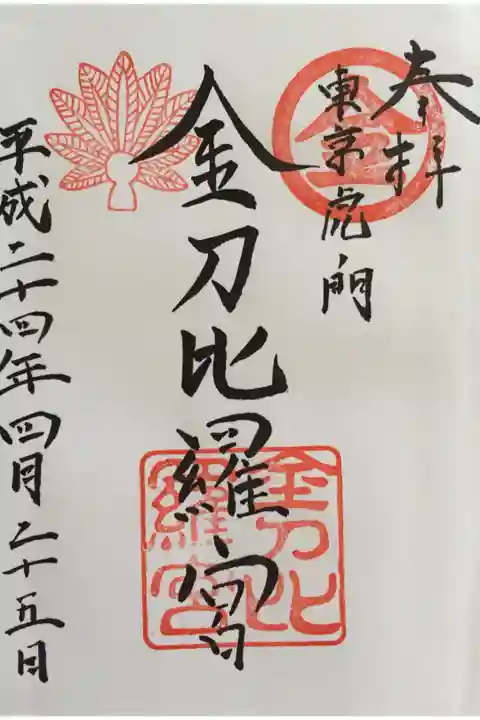 奉拝
東京虎ノ門
金
金刀比羅宮
金刀比羅宮
平成二十四年四月二十五日